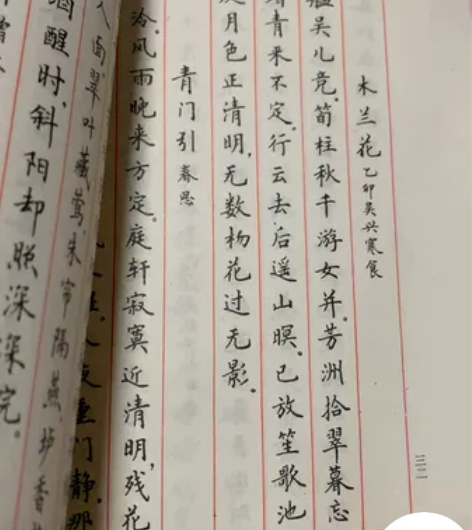 木兰花 乙卯吴兴寒食
吴儿竞。筍柱秋千游女并。芳洲拾翠暮忘
青来不定。行云去后遥山暝。已放笙歌池
月色正清明,无数杨花过无影。
青门引 春思
冷。风雨晚来方定。庭轩寂寞近清明,残花
夜重门静。那
面翠叶藏莺,朱帘隔燕,炉香
酒醒时,斜阳却照深深院。
三二